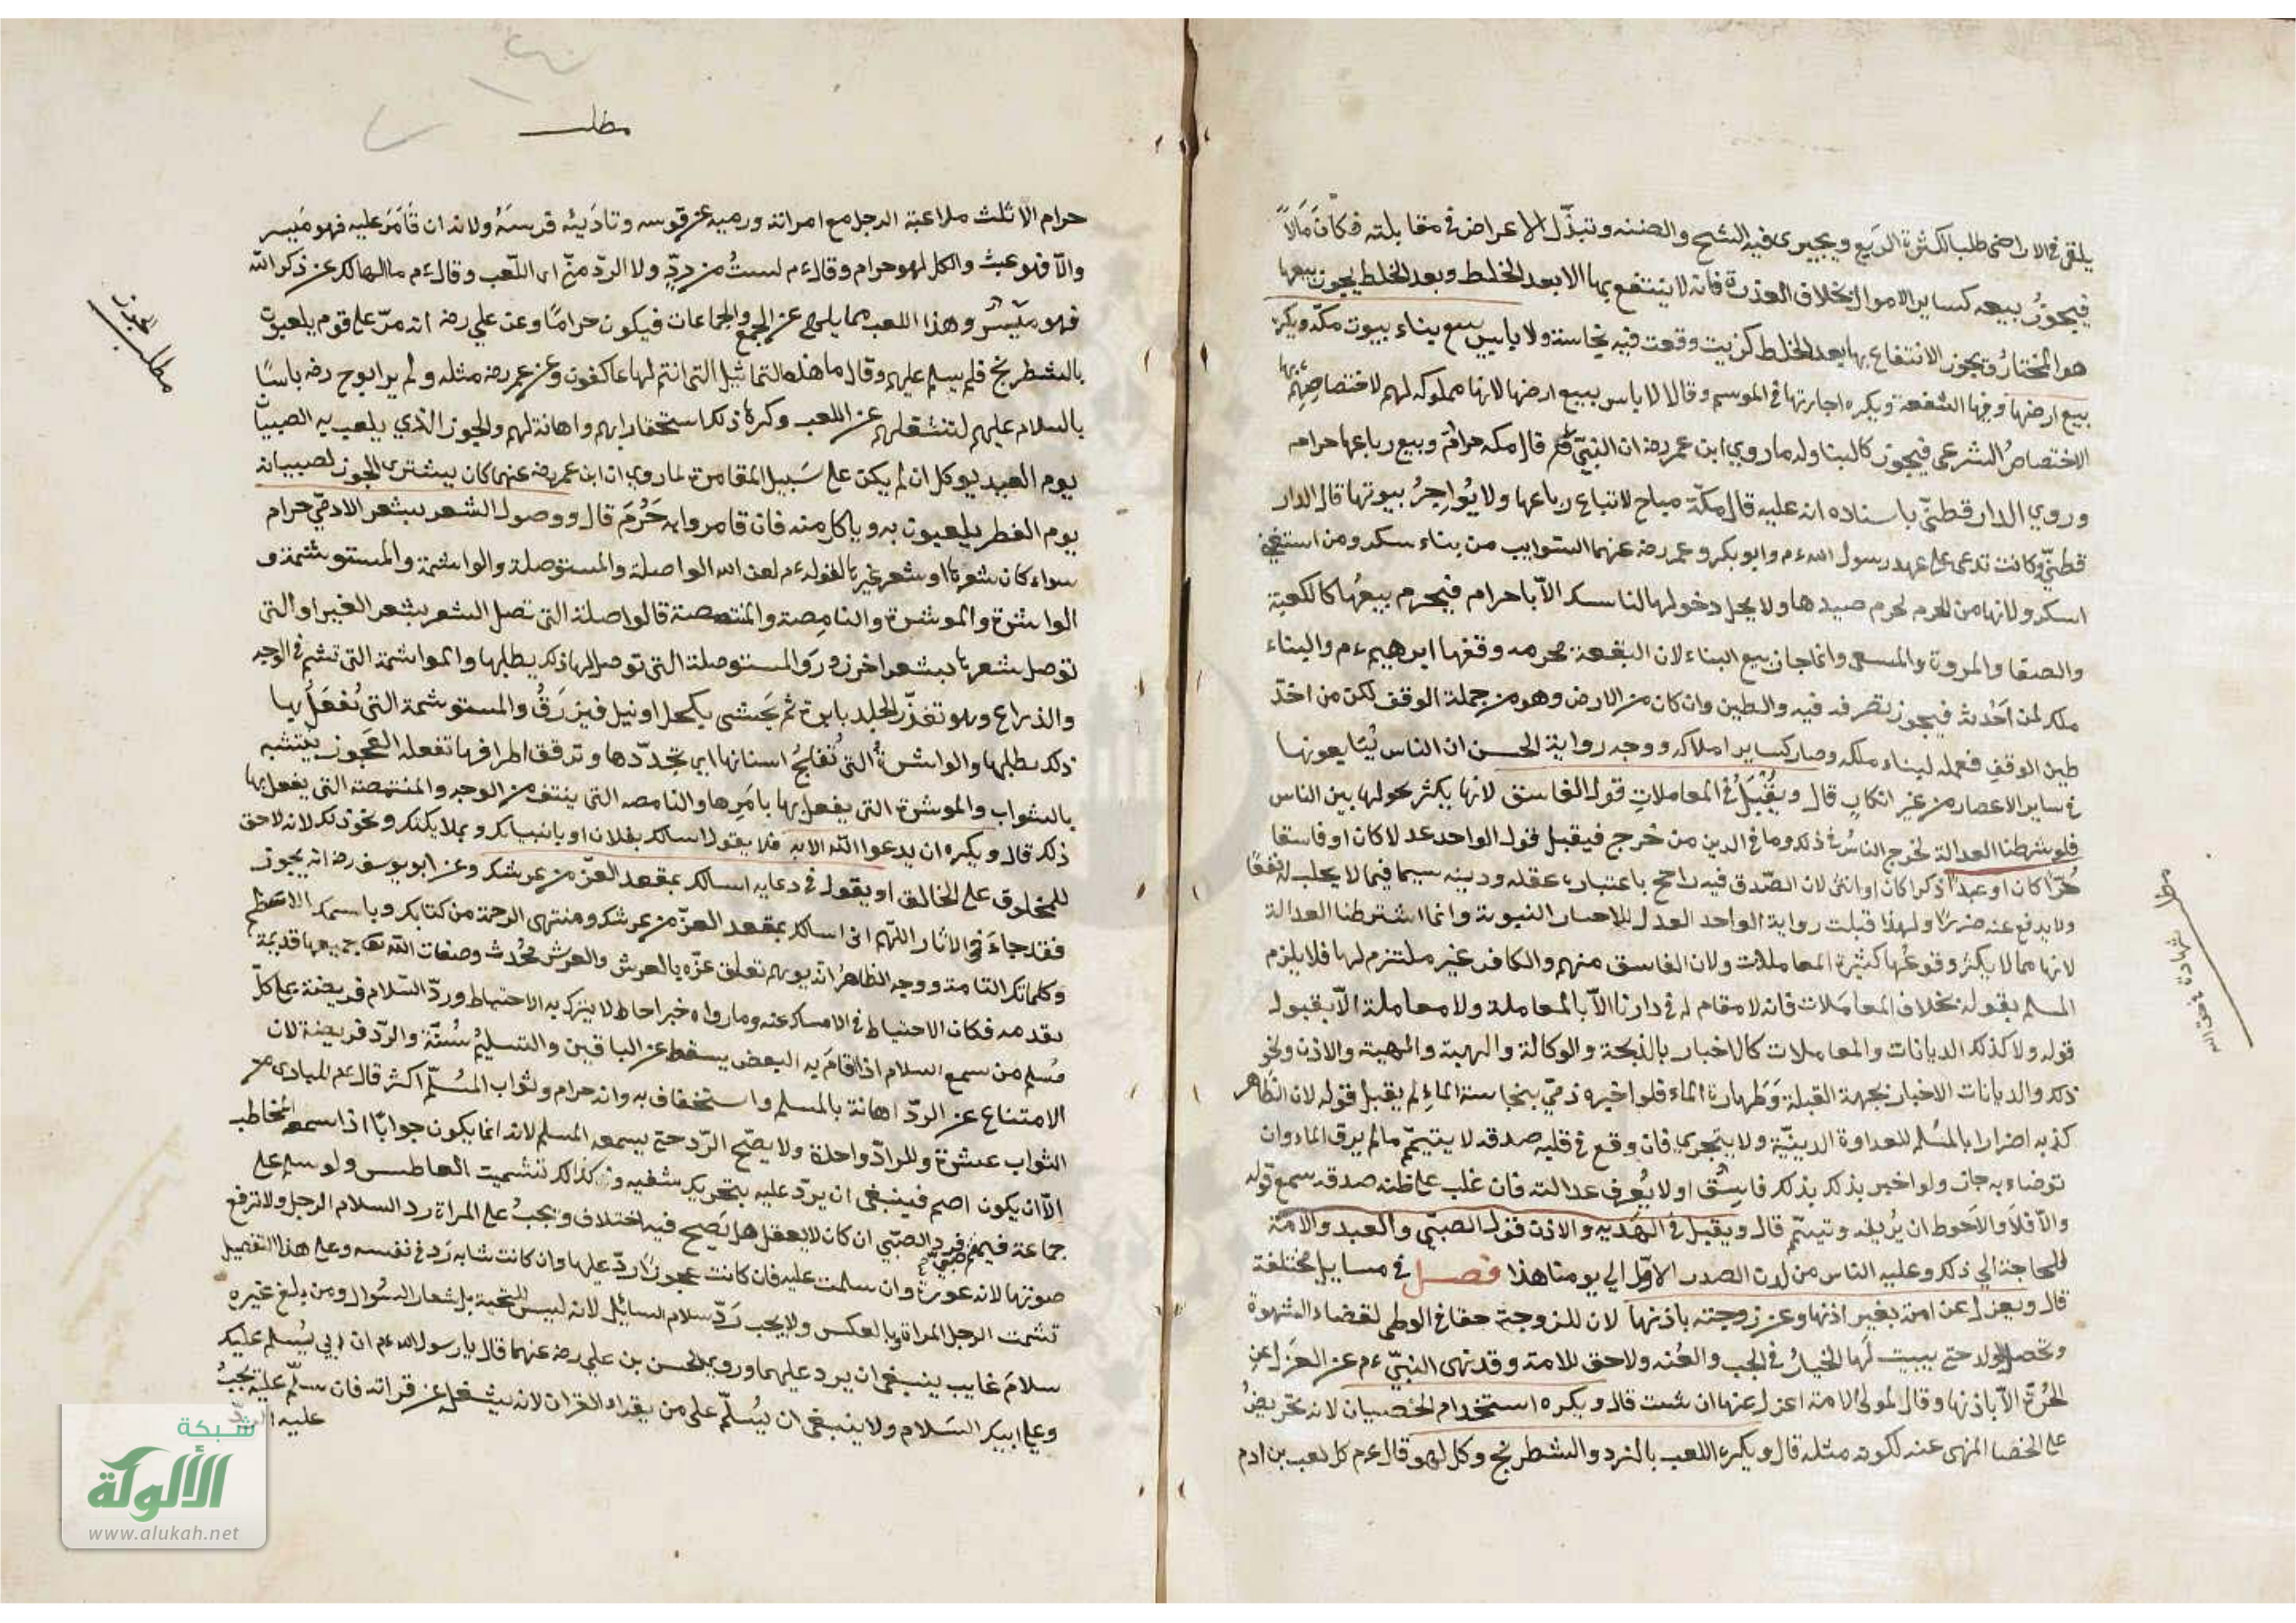 يلقى في الاراضى طلبا لكثرة الريع ويجيرى فيه الشح والضنه وتبذّل الاعراض في مقابلته فكان مَالاً
فيجوزُ بيعه كساير الاموال بخلاف العذرة فانه لا ينتفع بها الا بعد الخلط وبعد الخلط يجوز بيعها
هو المختارُ ويجوز الانتفاع بها بعد الخلط كزيت وقعت فيه نجاسة ولا باس ببيع بناء بيوت مكّه ويكره
بيع ارضها وفيها الشفعة ويكره اجارتها في الموسم وقالا لا باس ببيع ارضها لانها مملوكه لهم لاختصاصهم بها
الاختصاصُ الشرعى فيجوز كالبنا وله ما روي ابن عمر رضه ان النبيّ قال مكه حرامٌ وبيع رباعها حرام
وروي الدار قطنيّ باسناده انه عليه قال مكّة مباح لا تباع رباعها ولا يُواجِرُ بيوتها قال الدار
قطنيّ وكانت تدعى على عهد رسول الله ءم وابو بكر وعمر رضه عنهما السّوايب من يناء سكن ومن استغنى
اسكن ولانها من الحرم لحرم صيدها ولا يحل دخولها لناسك الاّ باحرام فيحرم بيعُها كالكعبة
والصفا والمروة والمسعى وانما جاز بيع البناء لان البقعة محرمه وقفها ابرهيم ءم والبناء
ملك لمن اَحْدثه فيجوز تصرفه فيه والطين وان كان من الارض وهو من جملة الوقف لكن من اخذ
طين الوقف فعمله لبناء ملكه وصار كساير املاكه ووجه رواية الحسن ان الناس يُتَبايعونها
في ساير الاعصار من غير انكارٍ قال ويُقْبَلُ في المعاملاتِ قول الفاسق لانها يكثر بحولها بين الناس
فلو شرطنا العدالة لخرج الناسُ في ذلك وما في الدين من حَرج فيقبل قول الواحد عدلا كان او فاسقا
حُرّا كان او عبداً ذكرا كان او انثى لان الصّدق فيه راجح باعتبار عقله ودينه سيما فيما لا يجلب له نفعًا
ولا يدفع عنه ضررًا ولهذا قبلت رواية الواحد العدل للاخبار النبوية وانما اشترطنا العدالة
لانها مما لا يكثر وقوعُها كثيرة المعاملات ولان الفاسق متهم والكافر غير ملتزم لها فلا يلزم
المسلم بقوله بخلاف المعاملات فانه لا مقام له في دارنا الاّ بالمعاملة ولا معاملة الاّ بقبول
قوله ولا كذلك الديانات والمعاملات كالاخبار بالذبحة والوكالة والهبة والهبية والاذن ونحو
ذلك والديانات الاخبار بجهة القبلة وَطهارة الماء فلو اخبره ذميّ بنجاسة الماءِ لم يقبل قوله لان الظاهر
كذبه اضرارا بالمُسلم للعداوة الدينيّة ولا يتحرى فان وقع في قلبه صدقه لا يتيمّم ما لم يرق الماء وان
توضاء به جاز ولو اخبر بذلك بذلك فاسقٌ او لا يُعرف عدالته فان غلب على ظنه صدقه سمع قوله
والاّ فلا والاَحوط ان يُريقه وتيمّم قال ويقبل في الهَديه والاذن قول الصبيّ والعبد والامَة
للحاجة الي ذلك وعليه الناس من لدن الصدر الاوّل الي يومنا هذا فصل في مسايل مختلفة
قال ويعزل عن امته بغير اذنها وعن زوجته باذنها لان للزوجة حقا في الوطى لقضاء الشهوة
وتحصيل الولد حتى يبيت لَها الخيارُ في الجب والعُنه ولا حق للامة وقد نهى النبيّ ءم عن العزل عن
الحُرّة الاّ باذنها وقال لمولى الامة اعزل عنها ان شئت قال ويكره استخدام الخصيان لانه تحريضٌ
على الخصا المنهى عنه لكونه مثله قال ويكره اللعب بالنرد والشطرنج وكل لهو قال ءم كل لعب بن ادم
مطل شهادة
مطلب
حرام الا ثلث ملاعبة الرجل مع امراته ورميه عن قوسه وتاديبُه فرسَهُ ولانه ان قَامَرَ عليه فهو مَيسر
والاّ فهو عبث والكل لهو حرام وقال ءم لستُ من دردٍ ولا الردّ منّى اى اللّعب وقال ءم ما الهاك عن ذكر الله
فهو ميْسر وهذا اللعب مما يلهى عن الجمع والجماعات فيكون حرامًا وعن علي رضه انه مرّ على قوم يلعبون
بالشطرنج فلم يسلم عليهم وقال ما هذه التماثيل التى انتم لها عاكفون وعن عمر رضه مثله ولم ير ابو ح رضه باسًا
بالسلام عليهم لتشغلهم عن اللعب وكرها ذلك استحقارا بهم واهانة لهم والجوز الذي يلعب به الصبيان
يوم العيد يوكل ان لم يكن على سَبيل المقامرة لما روي ان ابن عمر رضه عنهما كان يشترى الجوز لصبيانه
يوم الفطر يلعبون به وياكل منه فان قامروا به حَرُمَ قال ووصول الشعر بشعر الادميّ حرام
سواء كان شعرها او شعر غيرها لقوله ءم لعن الله الواصلة والمستوصلة والواشمة والمستوشمة و
الواشرة والموشرة والنامِصة والمتنمصة فالواصلة التى تصل الشعر بشعر الغير او التى
توصل شعرها بشعر اخر زورَوا والمستوصلة التى توصل لها ذلك بطلبها والواشمة التى تشم في الوجه
والذراع وهو تغذّر الجلد بابرة ثم يَحشى بكحل او نيل فيزرَقُ والمستوشمة التى يُفعَل بها
ذلك بطلبها والواشرةُ التى تُفلجُ اسنانها اى تحدّدها وترقق اطرافها تفعله العجوز يتشبه
بالشواب والموشرة التى يفعل بها بامرِها والنامصه التى ينتف من الوجه والمتنمصة التى يفعل بها
ذلك قال ويكره ان يدعوا الله الا به فلا يقول اسالك بفلان او بانبيائك وبملايكتك ونحو ذلك لانه لا حق
للمخلوق على الخالق او يقول في دعايه اسالك بمقعد العزّ من عرشك وعن ابو يوسف رضه انه يجوز
فقد جاءَ في الاثار اللّهم انى اسالك بمقعد العزّ من عرشك ومنتهى الرحمة من كتابك وباسمك الاعظم
وكلماتك التامة ووجه الظاهرُ انه يوهم تعلق عزّه بالعرش والعرش مُحْدث وصفات الله تعا جميعها قديمَة
بقدمه فكان الاحتياط في الامساك عنه وما رواه خبر احاط لا يترك به الاحتياط وردّ السّلام فريضة على كلّ
مُسلم من سمع السلام اذا قامَ به البعض يسقط عن الباقين والتسليمُ سُنّة والردّ فريضة لان
الامتناع عن الردّ اهانة بالمسلم واستخفاف به وانه حرام وثواب المُسَلّم اكثر قال ءم للبادى من
الثواب عشرة وللرادّ واحدة ولا يصّح الردّ حتى يسمعه المسلم لانه انما يكون جوابًا اذا سمعه المخاطب
الاّ ان يكون اصم فينبغى ان يردّ عليه بتحريك شفيه وكذالك تشميت العاطس ولو سلم على
جماعة فيهم صبيّ فرد الصبّي ان كان لا يعقل هل يَصح فيه اختلاف ويجبُ على المراة رد السلام الرجل ولا ترفع
صوتها لانه عورة وان سلمت عليه فان كانت عجوزا ردّ عليها وان كانت شابه رَد في نفسه وعلى هذا التفصيل
تشمت الرجل المراة وبالعكس ولا يجب رَدّ سلام السائل لانه ليس للتحية بل شعار السُوال ومن بلغ غيره
سلامَ غايب ينبغى ان يرد عليهما وروي الحسن بن علي رضه عنهما قال يا رسول الله ءم ان ابي يُسلم عليك
وعلى ابيك السَلام ولا ينبغى ان يُسَلّم على من يقراء القران لانه يشغل عن قراته فان سلّم عليه يجبُ
عليه الردّ
مطلب الجوز
شبكة
الألوكة
www.alukah.net